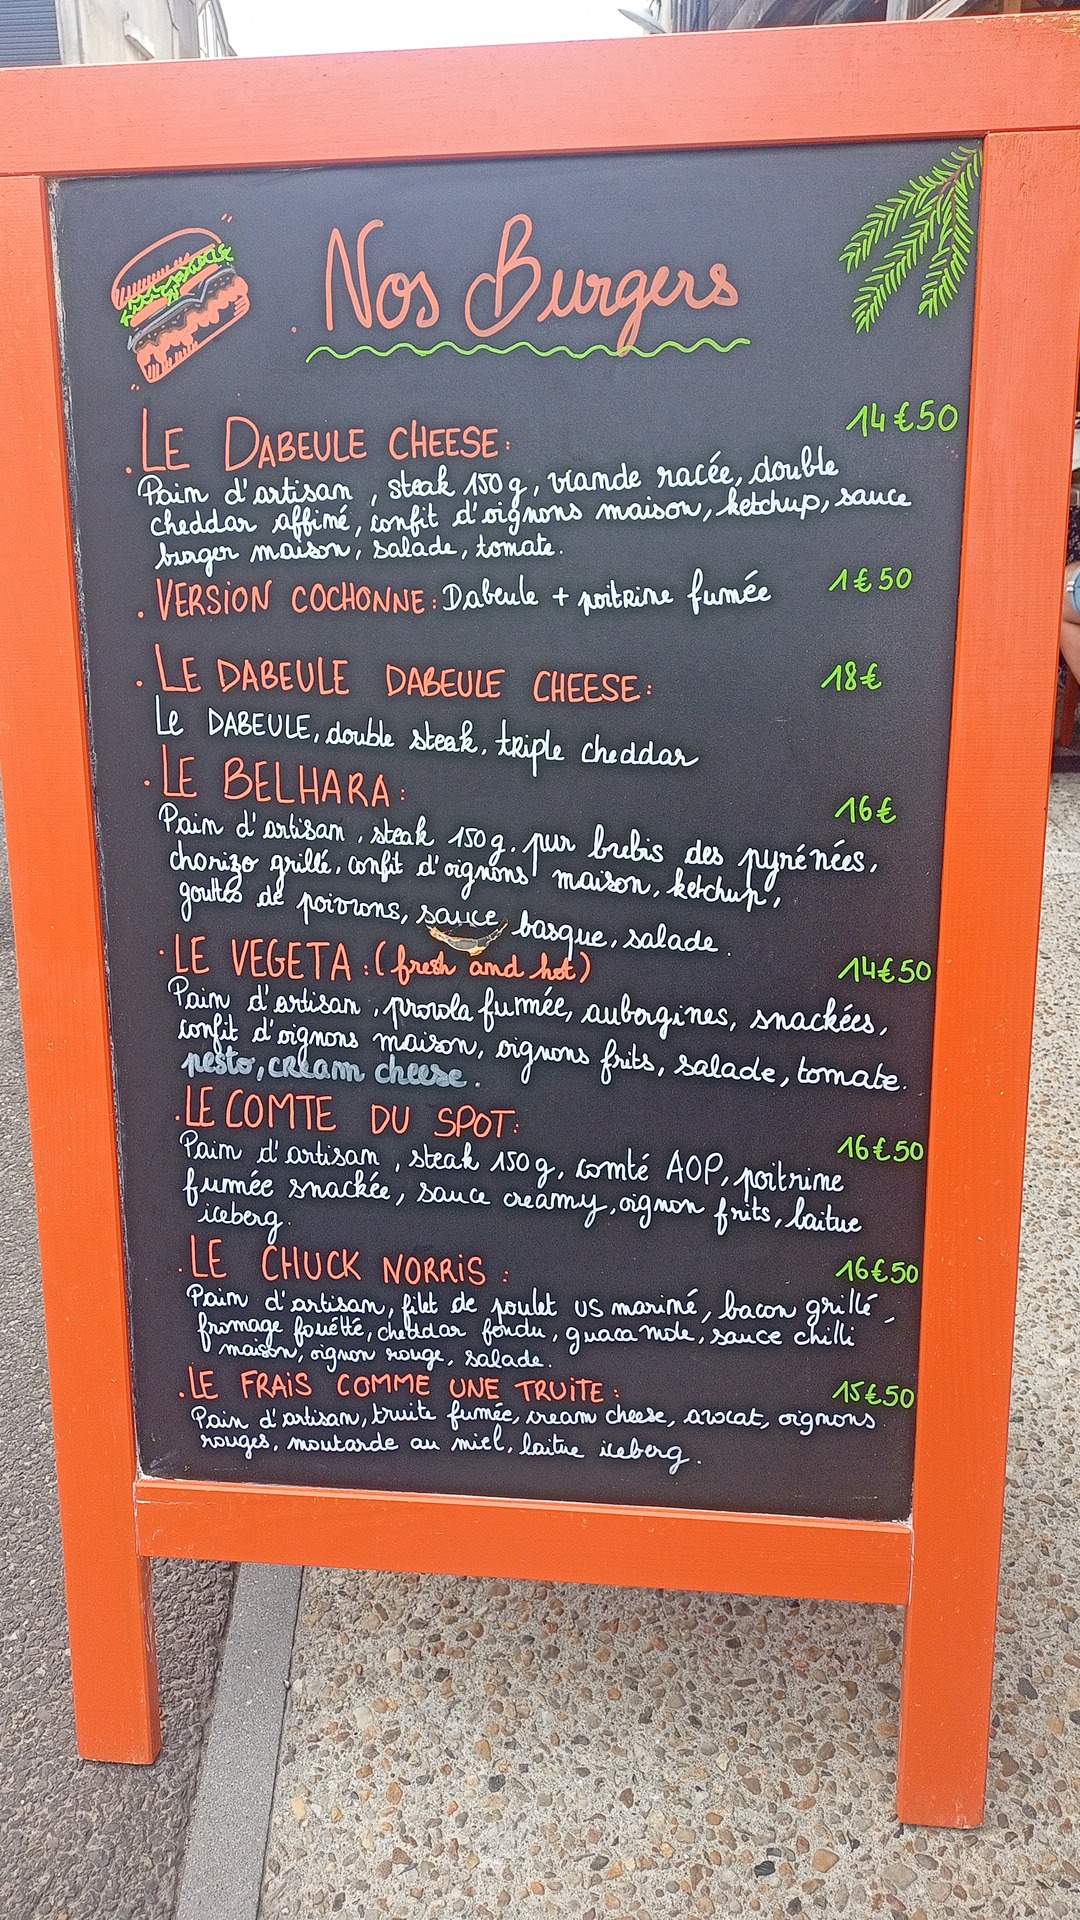 Nos Burgers
LE DABEULE CHEESE: 14€50
Pain d'artisan, steak 150g, viande racée, double
cheddar affiné, confit d'oignons maison, ketchup, sauce
burger maison, salade, tomate.
. VERSION COCHONNE: Dabeule + poitrine fumée 1€50
. LE DABEULE DABEULE CHEESE: 18€
Le DABEULE, double steak, triple cheddar
. LE BELHARA: 16€
Pain d'artisan, steak 150g. pur brebis des pyrénées,
chorizo grillé, confit d'oignons maison, ketchup,
gouttes de poivrons, sauce basque, salade.
. LE VEGETA: (fresh and hot) 14€50
Pain d'artisan, provola fumée, aubergines, snackées,
confit d'oignons maison, oignons frits, salade, tomate.
pesto, cream cheese.
. LE COMTE DU SPOT: 16€50
Pain d'artisan, steak 150g, comté AOP, poitrine
fumée snackée, sauce creamy, oignon frits, laitue
iceberg.
. LE CHUCK NORRIS: 16€50
Pain d'artisan, filet de poulet US mariné, bacon grillé,
fromage fouétté, cheddar fondu, guacamole, sauce chilli
maison, oignon rouge, salade.
. LE FRAIS COMME UNE TRUITE: 15€50
Pain d'artisan, truite fumée, cream cheese, avocat, oignons
rouges, moutarde au miel, laitue iceberg.